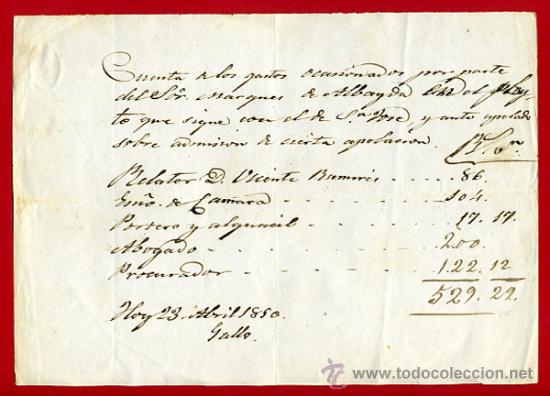 Cuenta de los gastos ocasionados por parte
del Sôr. Marques de Albayda en el pley-
to que sigue con el de Sn José, y auto apelado
sobre admision de cierta apelacion.
Rs. vn
Relator D. Vicente Ramires - - - - 86.
Esno. de Camara - - - - 104.
Portero y alguacil - - - - 17. 17.
Abogado - - - - 200.
Procurador - - - - 122. 12
529. 29.
Hoy 23 Abril 1850.
Gallo.
todocoleccion
www.todocoleccion.net